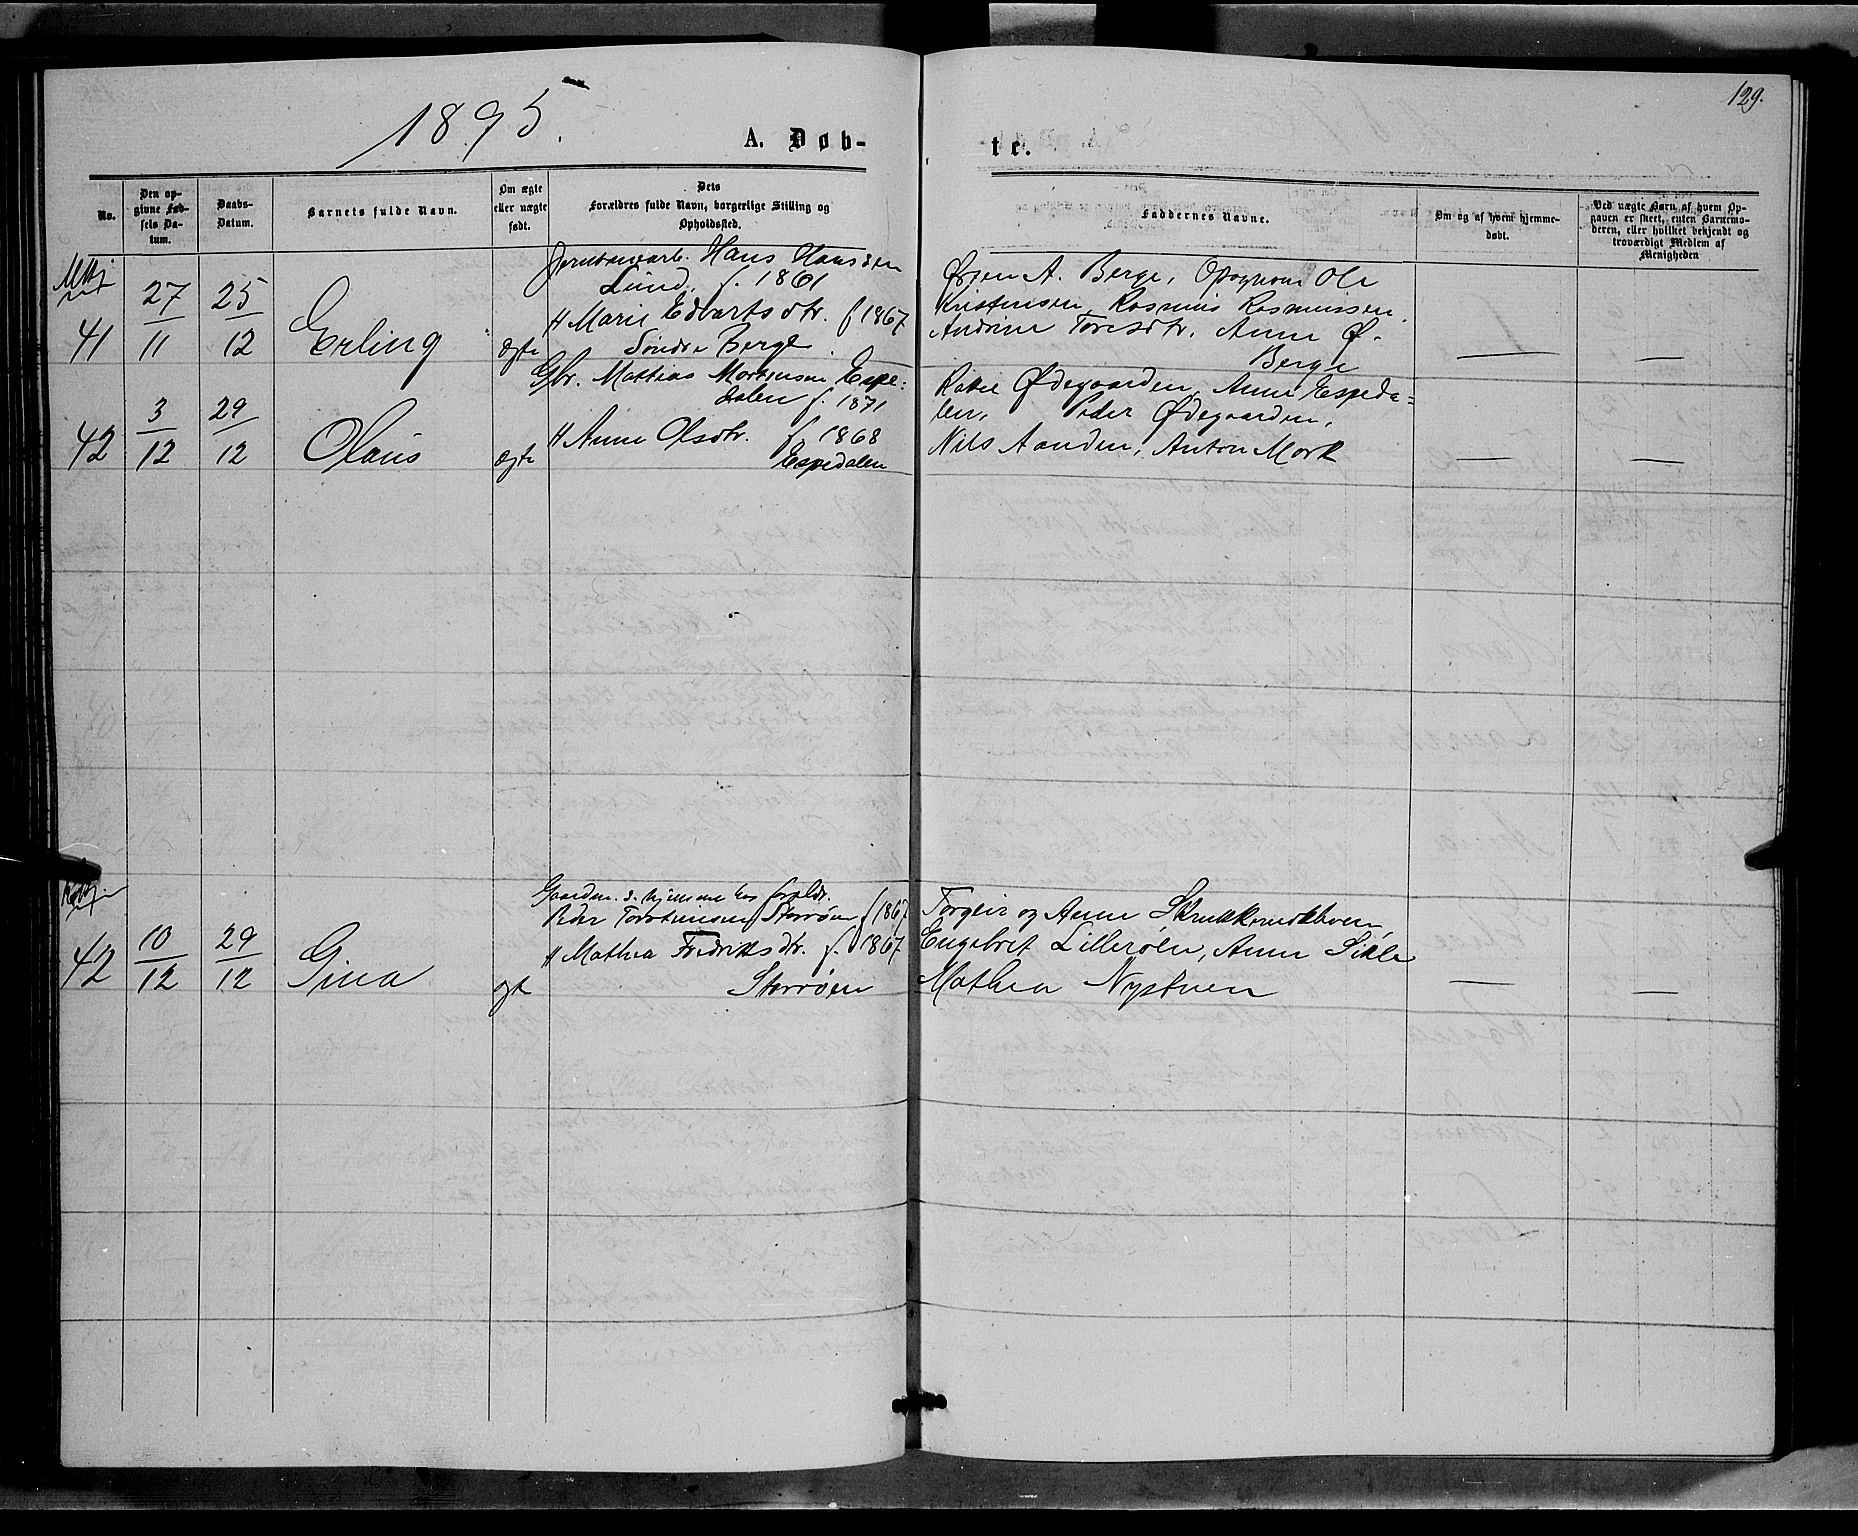 129.
1895.
A. Døb-
te.
No.
Den op-
givne Fød-
sels Da-
tum.
Daabs-
Datum.
Barnets fulde Navn.
Om ægte
eller uægte
født.
Dets
Forældres fulde Navn, borgerlige Stilling og
Opholdssted.
Faddernes Navne.
Om og af hvem hjemme-
døbt.
Ved uægte Børn af hvem Op-
gaven er skeet, enten Barnemo-
deren, eller hvilket bekjendt og
troværdigt Medlem af
Menigheden
41
27/11
25/12
Erling
ægte
Jernbanearb. Hans Hanssen
Lund. f. 1861
H Marie Edvartsdtr. f 1867
Søndre Berge
Ørjen A. Berge, Opsynsm Ole
Kristensen, Rasmus Rasmussen.
Andrine Toresdtr, Anne Ø.
Berge
42
3/12
29/12
Olaus
ægte
Gbr. Mattias Mortensen Espe-
dalen f. 1871
H Anne Olsdtr. f 1868
Espedalen
Ødegaarden, Anne Espeda=
len, Peder Ødegaarden,
Nils Aanden, Anton Mork
42
10/12
29/12
Gina
ægte
Gaardm. s. hjemme hos foreldr.
Peder Torstensen Storrøen f 1867
H Mathea Fredriksdtr. f. 1867
Storrøen
Torgeir og Anne
Engebret Lillerøen, Anne
Mathea Nystuen